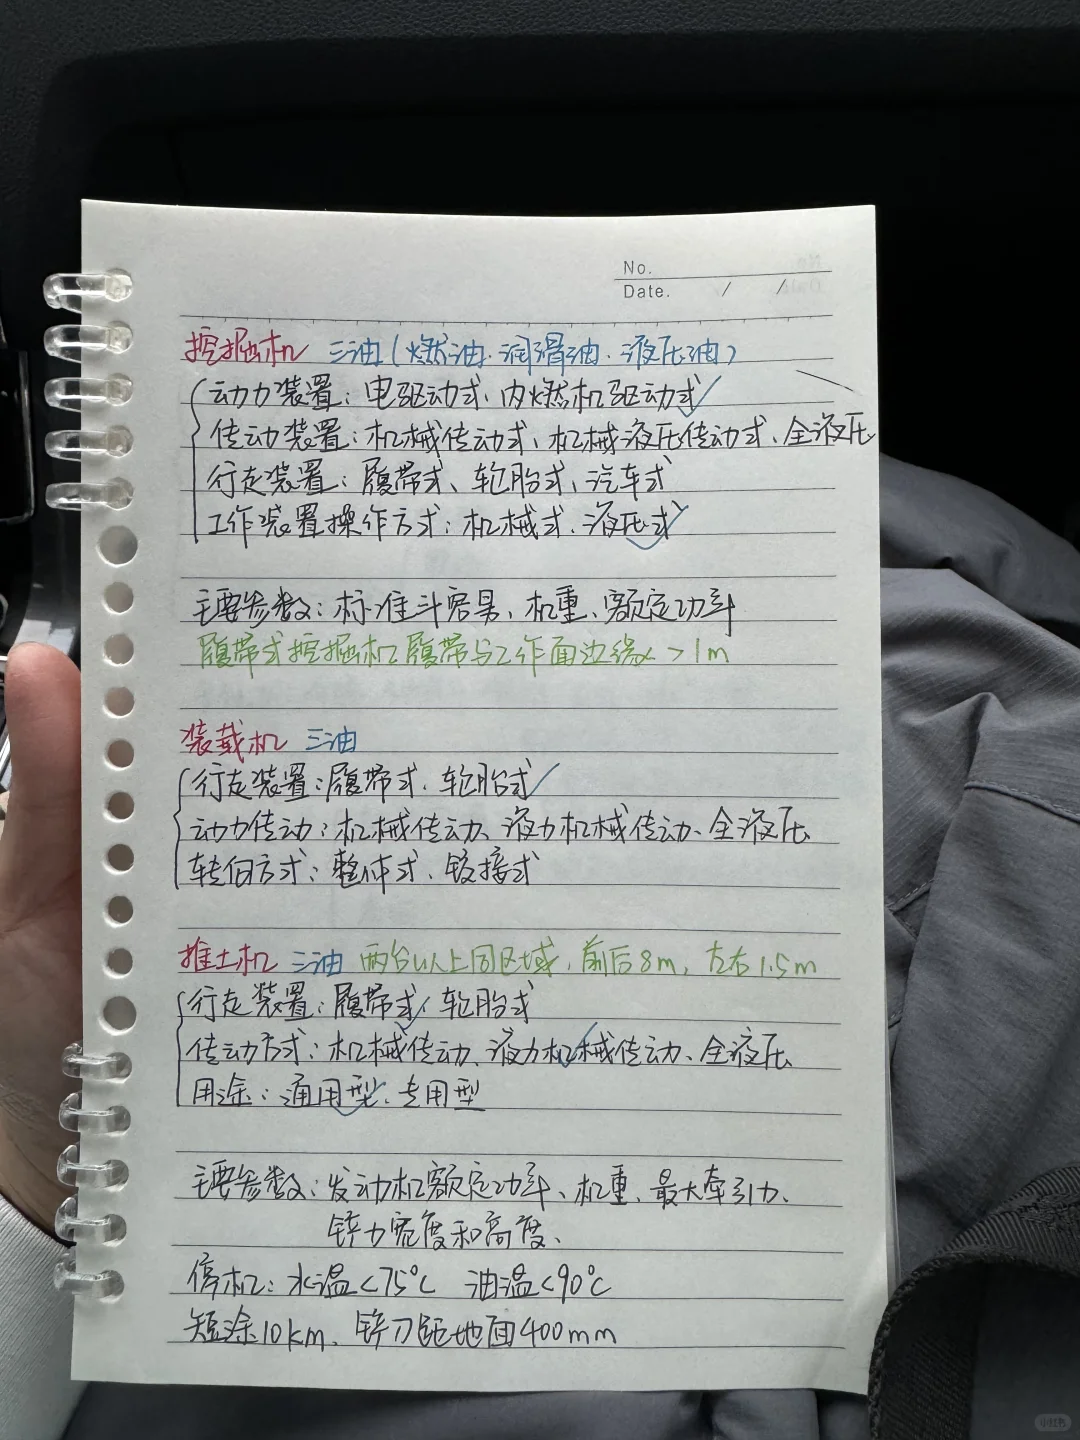 No.
Date. / /
挖掘机 三油(燃油.润滑油.液压油)
动力装置:电驱动式、内燃机驱动式✓
传动装置:机械传动式、机械液压传动式、全液压
行走装置:履带式、轮胎式、汽车式
工作装置操作方式:机械式.液压式✓
主要参数:标准斗容量、机重、额定功率
履带式挖掘机履带与工作面边缘>1m
装载机 三油
行走装置:履带式.轮胎式✓
动力传动:机械传动、液力机械传动、全液压
转向方式:整体式、铰接式
推土机 三油 两台以上同区域,前后8m,左右1.5m
行走装置:履带式✓轮胎式
传动方式:机械传动、液力机械传动✓、全液压
用途:通用型✓.专用型
主要参数:发动机额定功率、机重、最大牵引力、
铲刀宽度和高度、
停机:水温<75°C 油温<90°C
短途10km、铲刀距地面400mm
小红书